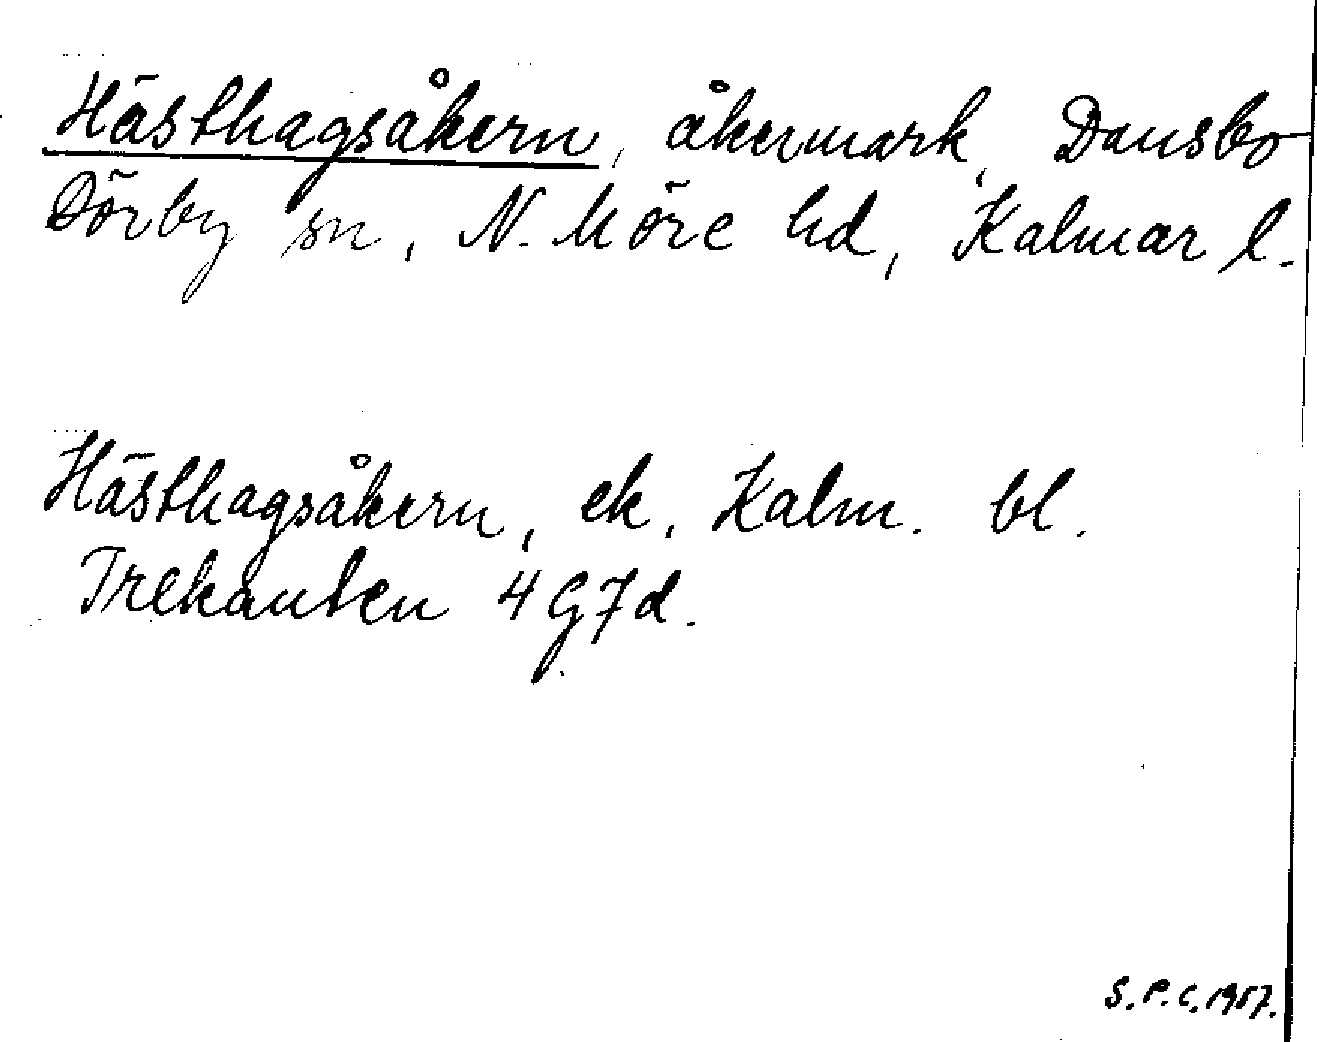 Hästhagsåkern, åkermark, Dansbo
Dörby sn, N. Möre hd, Kalmar l.
Hästhagsåkern, ek. Kalm. bl.
Trekanten 4G7d.
S.P.C. 1957.